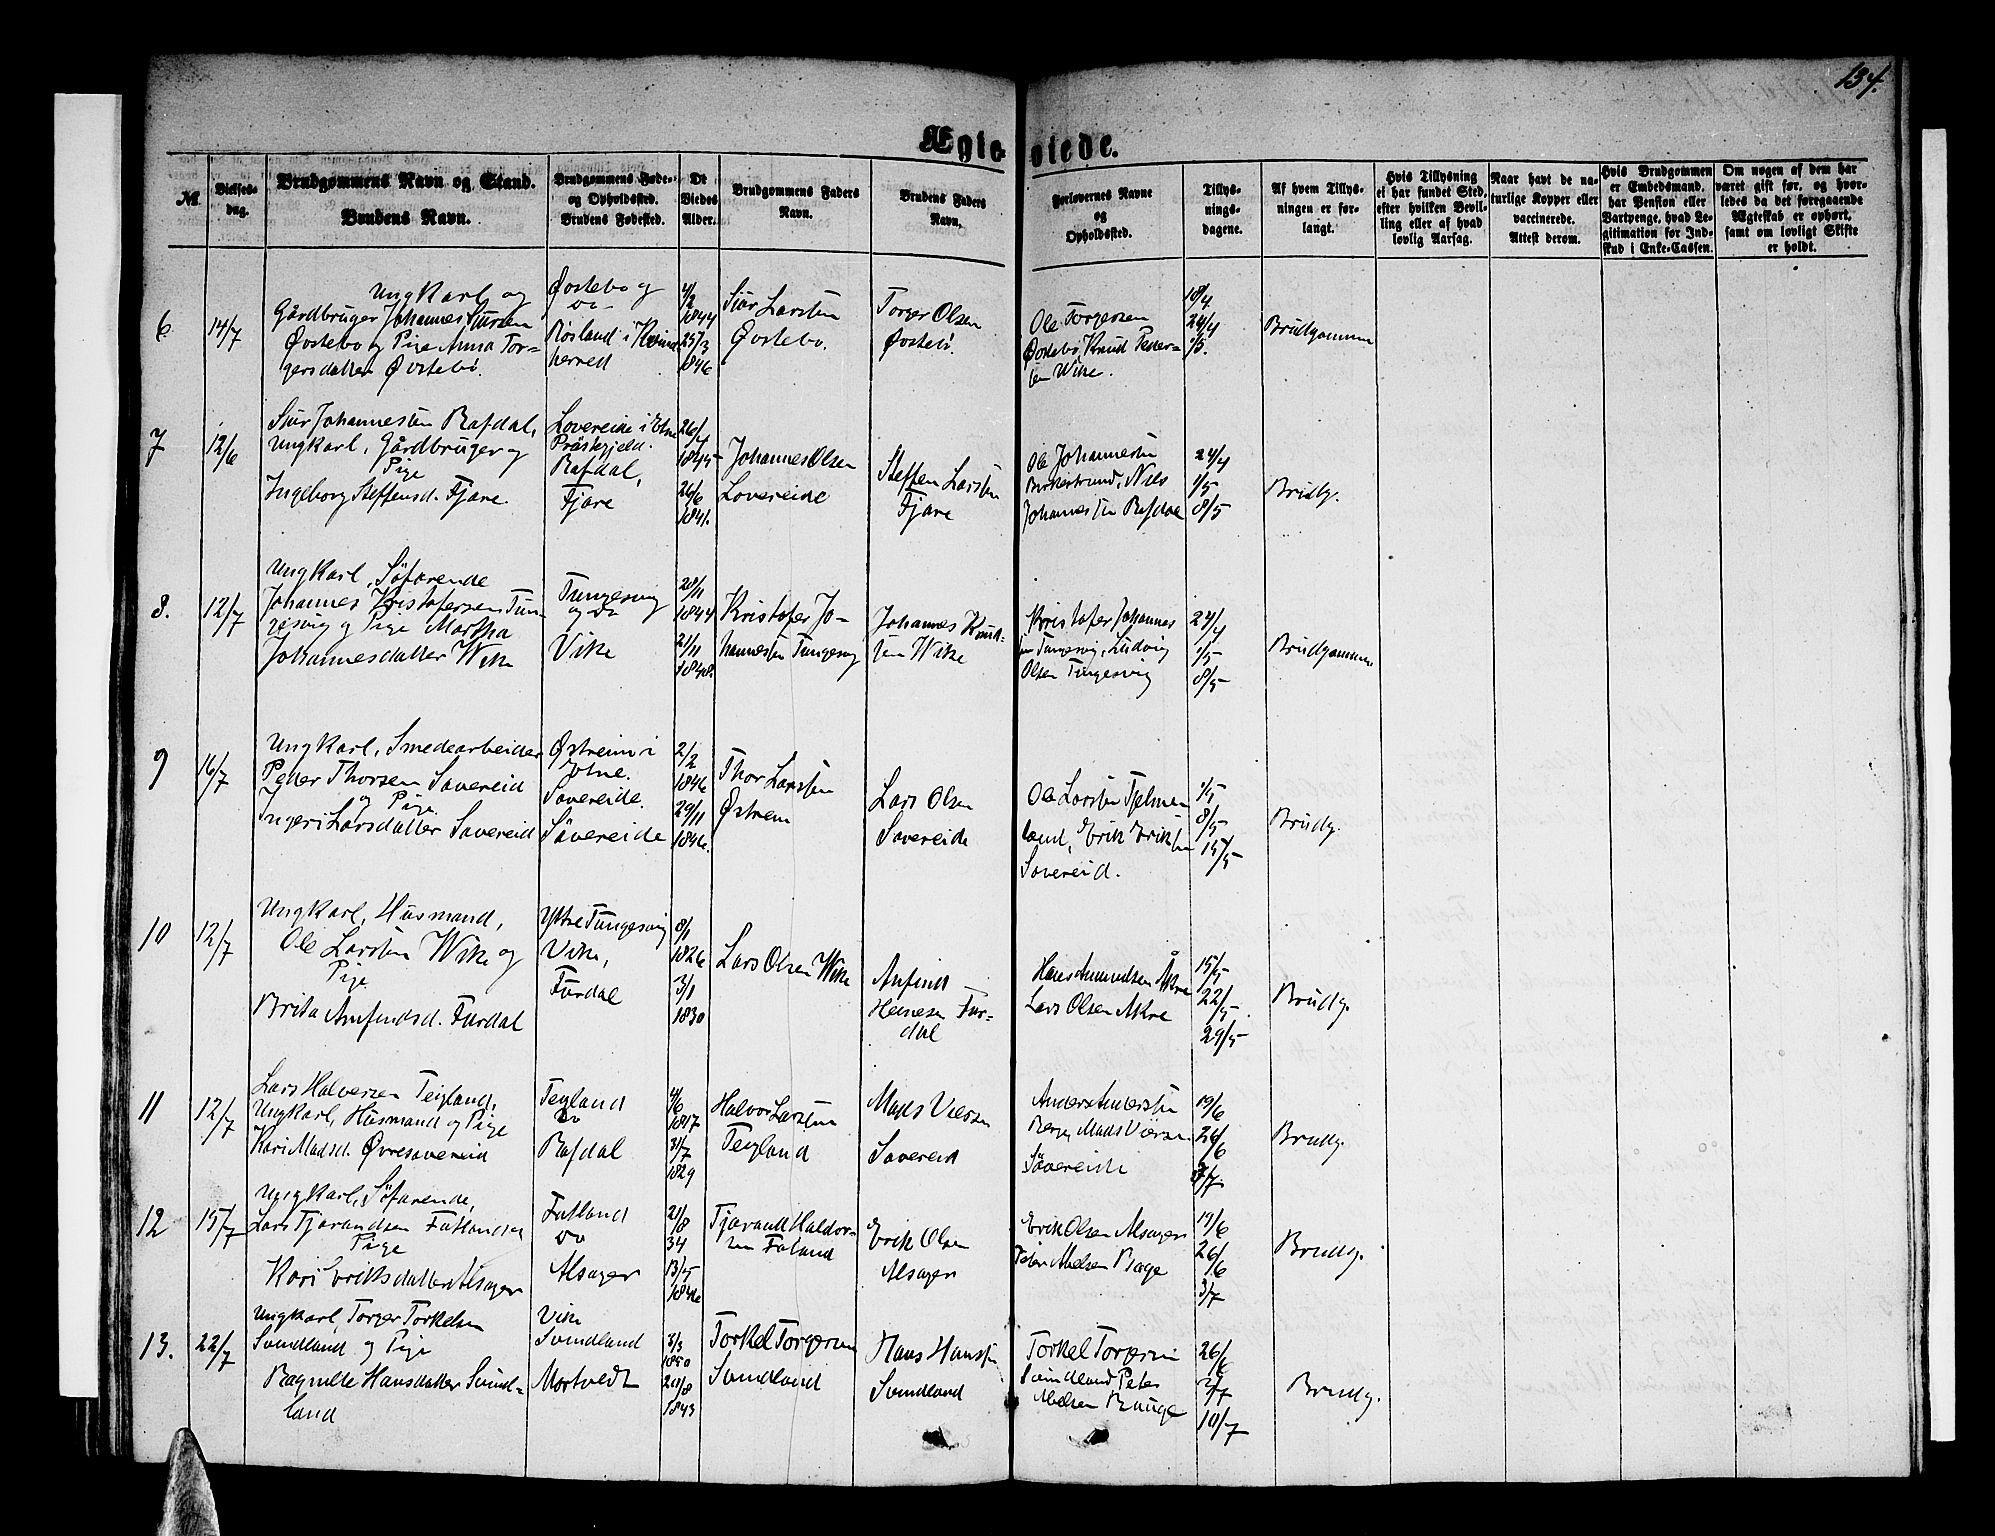 134.
Ægteviede.
№.
Vielses-
dag.
Brudgommens Navn og Stand.
Brudens Navn.
Brudgommens Føde-
og Opholdssted.
Brudens Fødested.
De
Viedes
Alder.
Brudgommens Faders
Navn.
Brudens Faders
Navn.
Forlovernes Navne
og
Opholdssted.
Tillys-
nings-
dagene.
Af hvem Tillys-
ningen er for-
langt.
Hvis Tillysning
ei har fundet Sted,
efter hvilken Bevil-
ling eller af hvad
lovlig Aarsag.
Naar havt de na-
turlige Kopper eller
vaccinerede.
Attest derom.
Hvis Brudgommen
er Embedsmand,
har Pension eller
Vartpenge, hvad Le-
gitimation for Ind-
skud i Enke-Cassen.
Om nogen af dem har
været gift før, og hvor-
ledes da det foregaaende
Ægteskab er ophørt,
samt om lovligt Skifte
er holdt.
6
14/7
Ungkarl og
Gårdbruger Johannes Siursen
Øvstebo og Pige Anna Tor-
gersdatter Øvstebö.
Øvstebo og
do
Røsland i
herred
4/2
1844
25/3
1846
Siur Larsten
Øvstebo.
Torger Olsen
Øvstebö.
Ole Torgersen
Øvstebö, Knud Peder-
sen Wike.
18/4
24/4
1/5.
Brudgommen
7
12/6
Siur Johannesten Rafdal,
Ungkarl, Gårdbruger og
Pige
Ingeborg Steffensd. Fjøre.
Lovereide i Etne
Präsgjeld.
Rafdal,
Fjøre
26/4
1845
26/6
1841.
Johannes Olsen
Lovereide
Steffen Larsten
Fjøre
Ole Johannesten
Birkestrand, Nils
Johannesten Rafdal
24/4
1/5
8/5
Brudg.
8.
12/7
Ungkarl, Söfarende
Johannes Kristofersen Tun-
gesvig og Pige Martha
Johannesdatter Wike
Tungesvig
og do
Vike
28/11
1844
21/11
1848.
Kristofer Jo-
hannesten Tungesvig
Johannes Knud-
sen Wike
Kristofer Johannes
sen Tungesvig, Ludvig
Olsen Tungesvig
24/4
1/5
8/5
Brudgommen
9
16/7
Ungkarl, Smedearbeider
Peder Thorsen Sævereid
og Pige
Ingeri Larsdatter Sævereid
Østreim i
Etne.
Sævereide.
Sävereide
2/2
1846
29/11
1846.
Thor Larsten
Østrem
Lars Olsen
Sævereide
Ole Larsten Tjelmen
land, Erik Eriksen
Sævereid.
1/5
8/5
15/5
Brudg.
10
12/7
Ungkarl, Husmand,
Ole Larsten Wike og
Pige
Brita Amfindsd. Furdal
Ytre Tungesvig
Vike,
Furdal
8/1
1826
3/1
1830
Lars Olsen Wike
Anfind
Fur-
dal
Hans Amundsen Åkre
Lars Olsen Akre
15/5
22/5
29/5
Brudg.
11
12/7
Lars Halversen Teigland,
Ungkarl, Husmand og Pige
Kari Madsd. Øvresævereid
Teigland
do
Rafdal
4/6
1817
31/7
1829
Halvor Larsten
Teigland
Mads
Sævereid
Anders Andersten
Berge, Mads
Sävereide
19/6
26/6
3/7
Brudg.
12
15/7
Ungkarl, Söfarende,
Lars Tjerandsen Fatland og
Pige
Kari Eriksdatter Alsager
Fatland
do
Alsager
21/8
34
13/5
1846
Tjerand Haldor-
sen Fatland
Erik Olsen
Alsager
Erik Olsen Alsager
Peder Abelsen Bage
19/6
26/6
3/7
Brudg.
13.
22/7
Ungkarl, Torger Torkelsen
Svindland og Pige
Ragnilde Hansdatter Svind-
land
Vike
Svindland
Mortvedt
3/3
1850
20/8
1843
Torkel Torgersen
Svindland
Hans Hansten
Svindland
Torkel Torgersen
Svindland, Peter
Abelsen Bauge
26/6
3/7
10/7
Brudg.